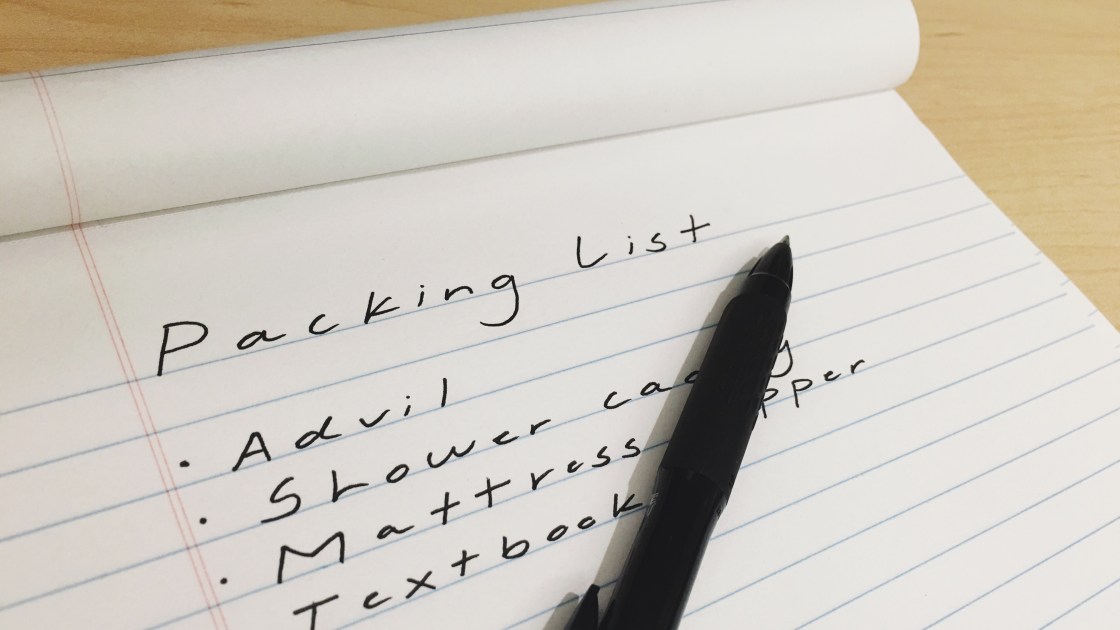 Packing List
· Advil
· Shower
· Mattress
Textbook